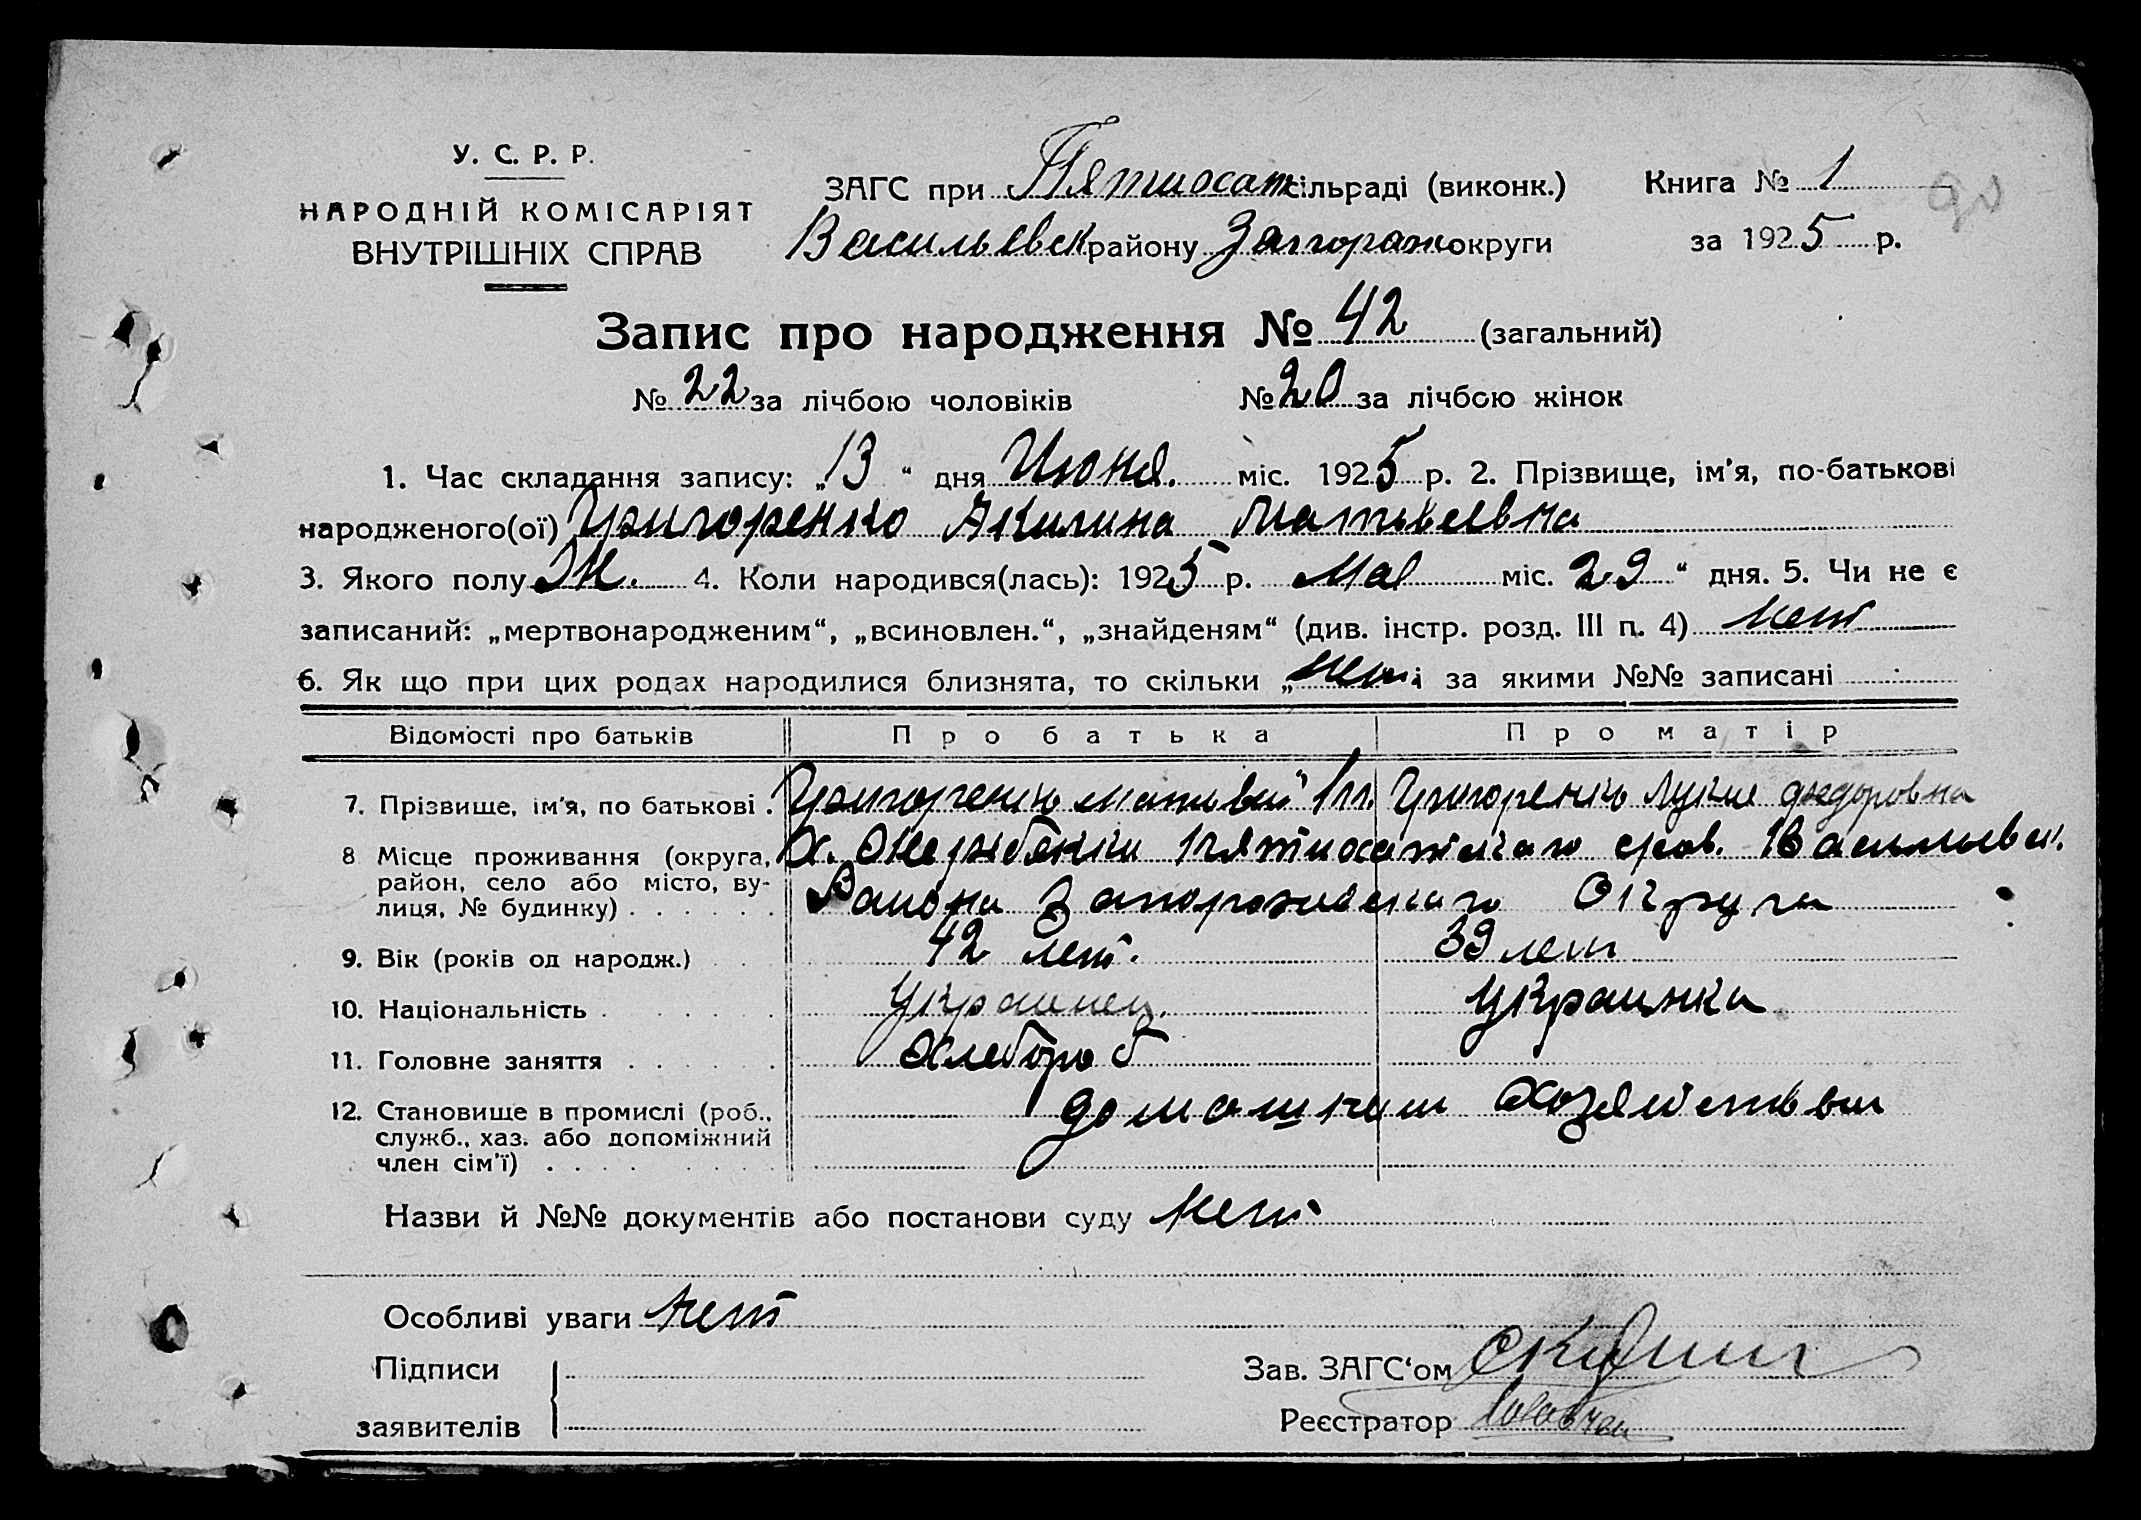 У. С. Р. Р.
НАРОДНІЙ КОМІСАРІЯТ
ВНУТРІШНІХ СПРАВ
ЗАГС при Пятихат сільраді (виконк.)
Васильевск району Запорож округи
Книга № 1
90
за 1925 р.
Запис про народження № 42 (загальний)
№ 22 за лічбою чоловіків № 20 за лічбою жінок
1. Час складання запису: „13“ дня Июня. міс. 1925 р. 2. Прізвище, ім’я, по-батькові
народженого(ої) Григоренко Акилина Матвеевна
3. Якого полу Ж. 4. Коли народився(лась): 1925 р. Мая міс. 29“ дня. 5. Чи не є
записаний: „мертвонародженим“, „всиновлен.“, „знайденям“ (див. інстр. розд. III п. 4) нет
6. Як що при цих родах народилися близнята, то скільки „нет і за якими №№ записані
Відомості про батьків Про батька Про матір
7. Прізвище, ім’я, по батькові . Григоренко Матвей Григоренко Лукия Федоровна
8 Місце проживання (округа, Х. Пятихатского Васильевск.
район, село або місто, ву-
лиця, № будинку) . . . . . . Района Запорожского Округа
9. Вік (років од народж.) 42 лет. 39 лет
10. Національність . Украинец. Украинка
11. Головне заняття . . . . . . Хлебороб
12. Становище в промислі (роб., домашнем хозяйстве
служб., хаз. або допоміжний
член сім’ї) . . . .
Назви й №№ документів або постанови суду нет
Особливі уваги нет
Підписи
заявителів
Зав. ЗАГС‘ом
Реєстратор